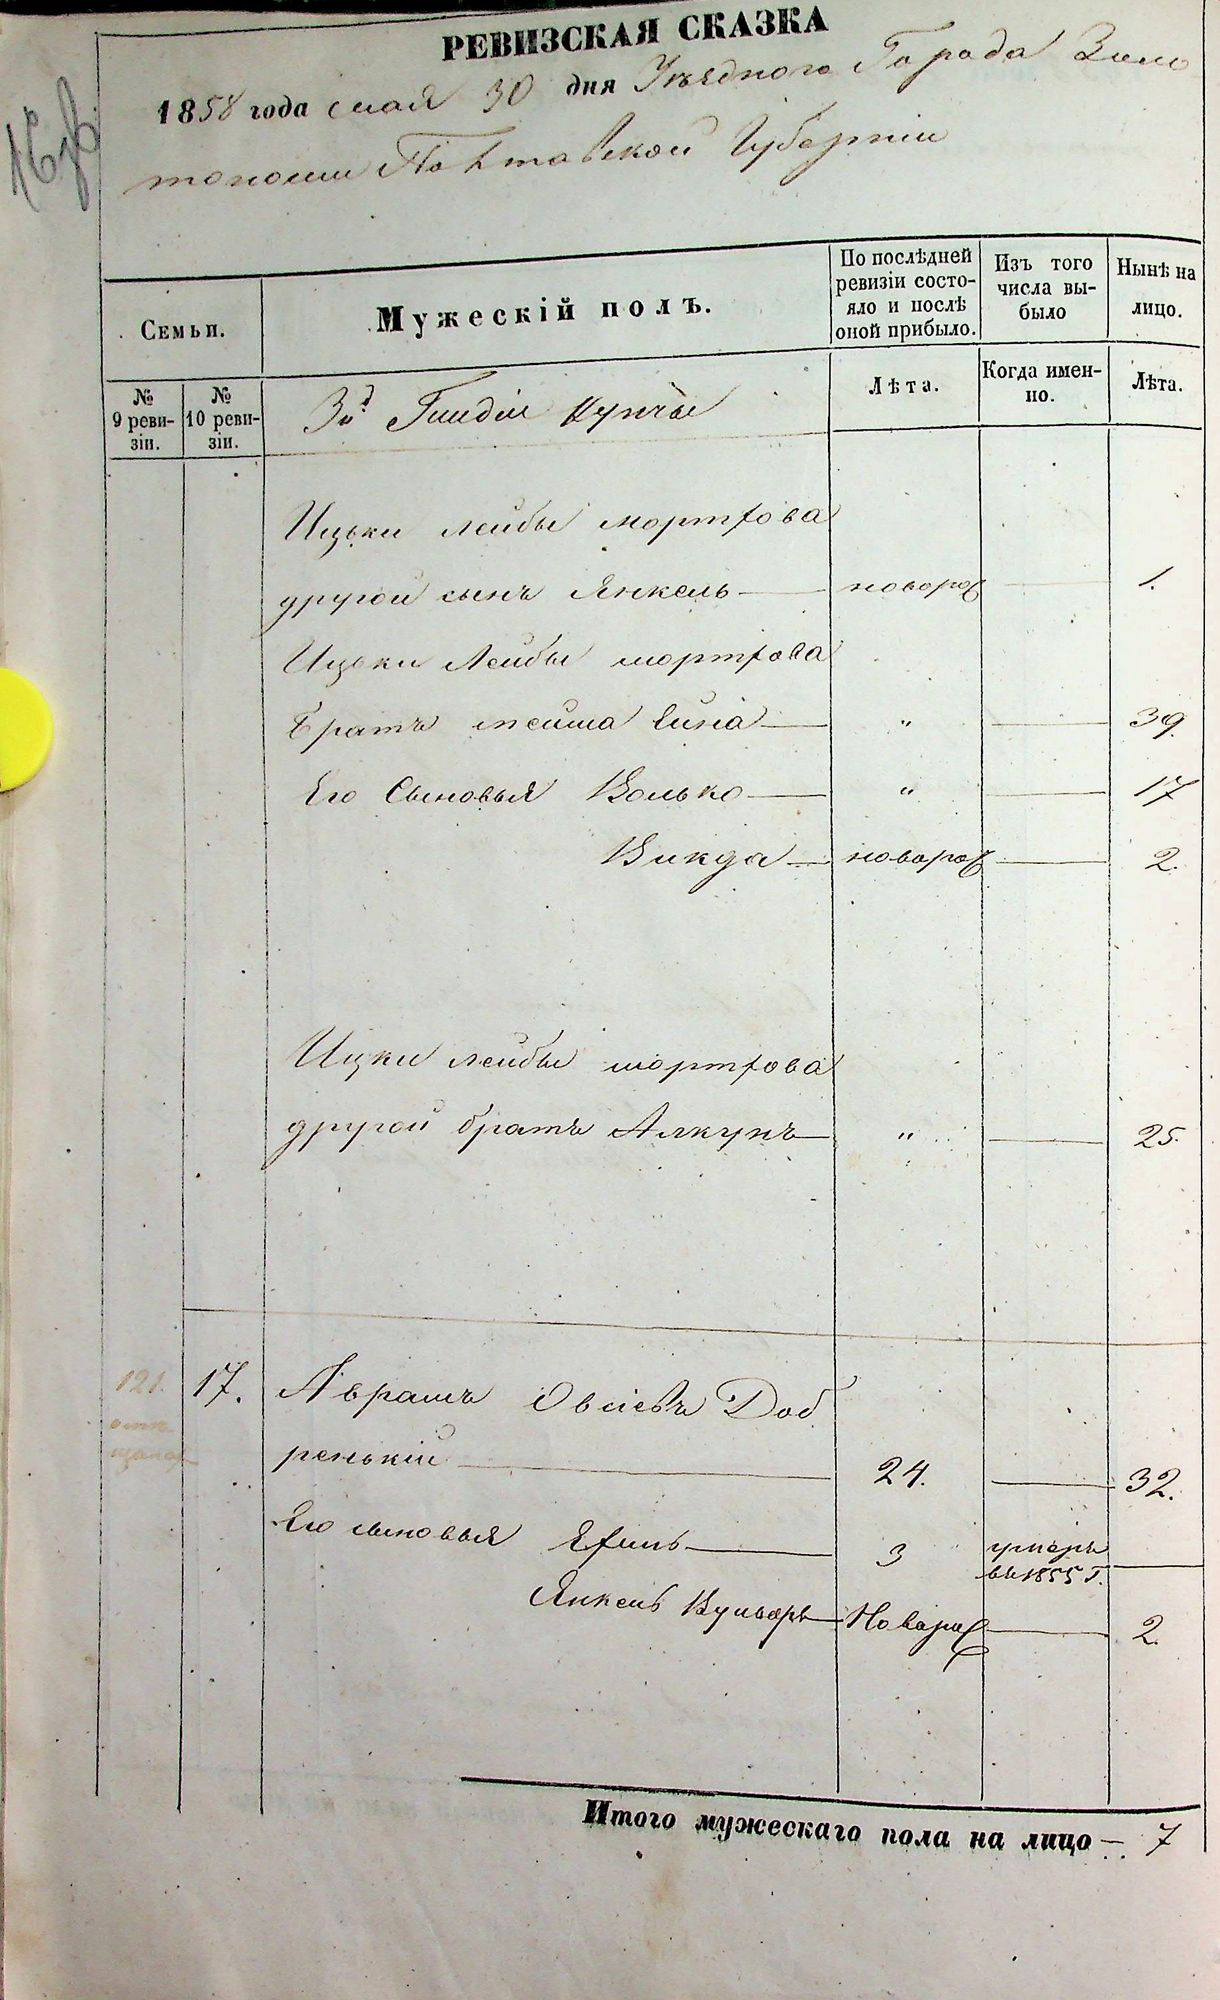 РЕВИЗСКАЯ СКАЗКА
1858 года мая 30 дня Уѣзднаго Города Золо
тоноши Полтавской Губерніи
Семьи.
Мужескій полъ.
По послѣдней ревизіи состо-
яло и послѣ оной прибыло.
Изъ того числа вы-
было
Нынѣ на лицо.
№ 9 реви-
зіи.
№ 10 реви-
зіи.
3й Гильдіи купцы
Лѣта.
Когда имен-
но.
Лѣта.
Ицьки Лейбы Мортхова
другой сынъ Янкель — новорож — 1.
Ицьки Лейбы Мортхова
Братъ — " — 39.
Его Сыновья Волько — " — 17
— новорож — 2.
Ицки Лейбы Мортхова
другой братъ — " — 25.
121. 17. Аврамъ Овсіевъ Доб
ренькій — 24. — 32.
Его сыновья — 3 умеръ
въ 1855 г. —
Янкель — Новорож — 2.
Итого мужескаго пола на лицо — 7